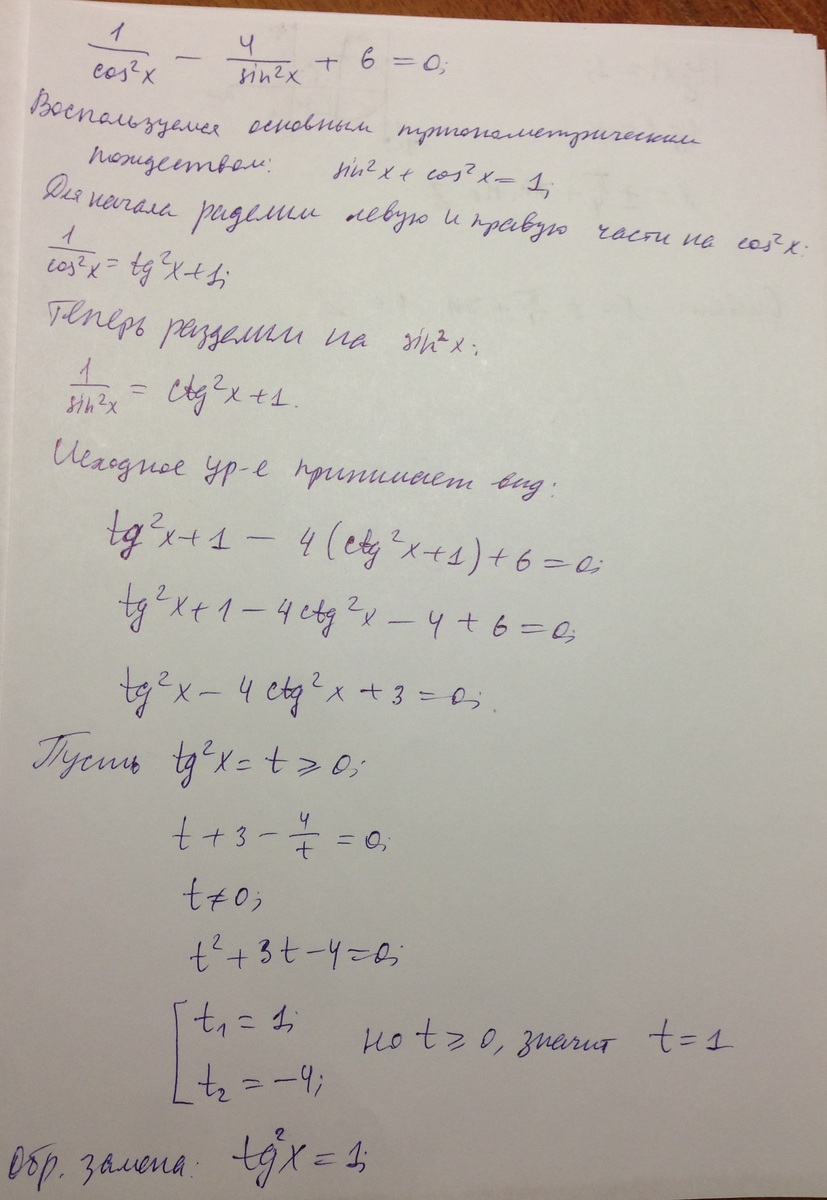 1/cos²x − 4/sin²x + 6 = 0;
Воспользуемся основным тригонометрическим
тождеством: sin²x + cos²x = 1;
Для начала раделим левую и правую части на cos²x:
1/cos²x = tg²x + 1;
Теперь разделим на sin²x:
1/sin²x = ctg²x + 1.
Исходное ур-е принимает вид:
tg²x + 1 − 4(ctg²x + 1) + 6 = 0;
tg²x + 1 − 4ctg²x − 4 + 6 = 0;
tg²x − 4ctg²x + 3 = 0;
Пусть tg²x = t ≥ 0;
t + 3 − 4/t = 0;
t ≠ 0;
t² + 3t − 4 = 0;
[ t₁ = 1;
t₂ = −4; но t ≥ 0, значит t = 1
Обр. замена: tg²x = 1;